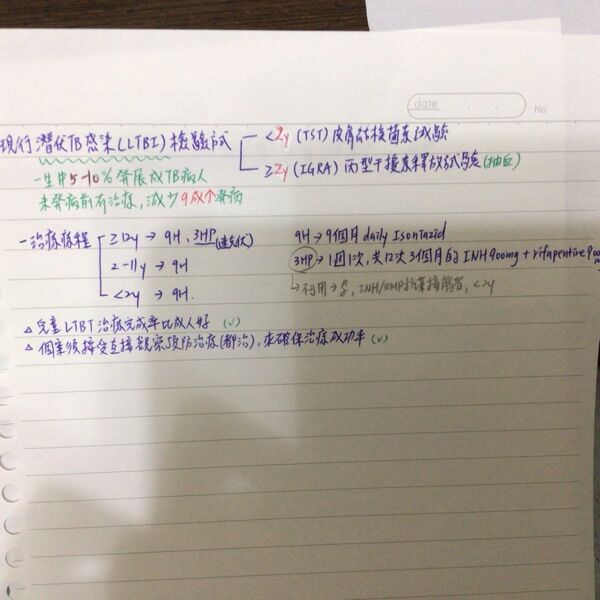 date
No.
現行潛伏TB感染(LTBI)檢驗方式
<2y (TST) 皮膚結核菌素試驗
≥2y (IGRA) 丙型干擾素釋放試驗(抽血)
一生中5-10%發展成TB病人
未發病前有治療,減少9成个發病
一治療療程
≥12y → 9H、3HP(速克伏)
2-11y → 9H
<2y → 9H.
9H → 9個月 daily Isoniazid
3HP → 1週1次,共12次 3個月的 INH 900mg + rifapentine 900
↳不用→孕,INH/RMP抗藥接觸者,<2y
△ 兒童LTBT治療完成率比成人好 (v)
△ 個案須接受直接觀察預防治療(都治),來確保治療成功率 (v)